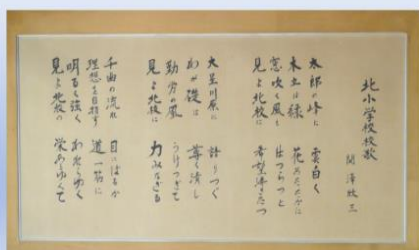 北小学校校歌
関澤欣三
太郎の峰に 雲白く
木立は緑 花あたたかに
窓吹く風も はつらつと
見よ北校に 希望湧きたつ
大星川原に 語りつぐ
わが礎は 尊く清し
勤労の風 うけつぎて
見よ北校に 力みなぎる
千曲の流れ 目にはるか
理想を目指す 道一筋に
明るく強く われらゆく
見よ北校の 栄あるゆくて